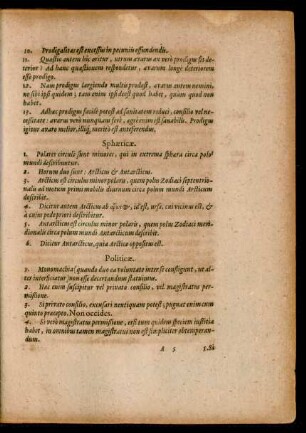 10. Prodigalitas est excessus in pecuniis effundendis.
11. Quæstio autem hic oritur, utrum avarus an vero prodigus sit de-
terior? Ad hanc quæstionem respondetur, avarum longe deteriorem
esse prodigo.
12. Nam prodigus largiendo multis prodest, avarus autem nemini,
ne sibi ipsi quidem; tam enim ipsi deest quod habet, quam quod non
habet.
13. Adhæc prodigus facile potest ad sanitatem reduci, consilio vel ne-
cessitate: avarus vero nunquam fere, ægerrime est sanabilis. Prodigus
igitur avaro melior, illiq; merito est anteferendus.
Sphæricæ.
1. Polares circuli sunt minores, qui in extrema sphæra circa polos
mundi describuntur.
2. Horum duo sunt: Arcticus & Antarcticus.
3. Arcticus est circulus minor polaris, quem polus Zodiaci septentrio-
nalis ad motum primi mobilis diurnum circa polum mundi Arcticum
describit.
4. Dicitur autem Arcticus ab id est, ursa, cui vicinus est, &
à cuius pede priori describitur.
5. Antarcticus est circulus minor polaris, quem polus Zodiaci meri-
dionalis circa polum mundi Antarcticum describit.
6. Dicitur Antarcticus, quia Arctico oppositus est.
Politicæ.
1. Monomachia (quando duo ea voluntate inter se confligunt, ut al-
ter interficiatur) non esse decertandum statuimus.
2. Hac enim suscipitur vel privato consilio, vel magistratus per-
missione.
3. Si privato consilio, excusari neutiquam potest; pugnat enim cum
quinto præcepto. Non occides.
4. Si vero magistratus permissione, etsi tum quidem speciem iustitiæ
habet, in omnibus tamen magistratui non est simpliciter obtemperan-
dum.
A 5